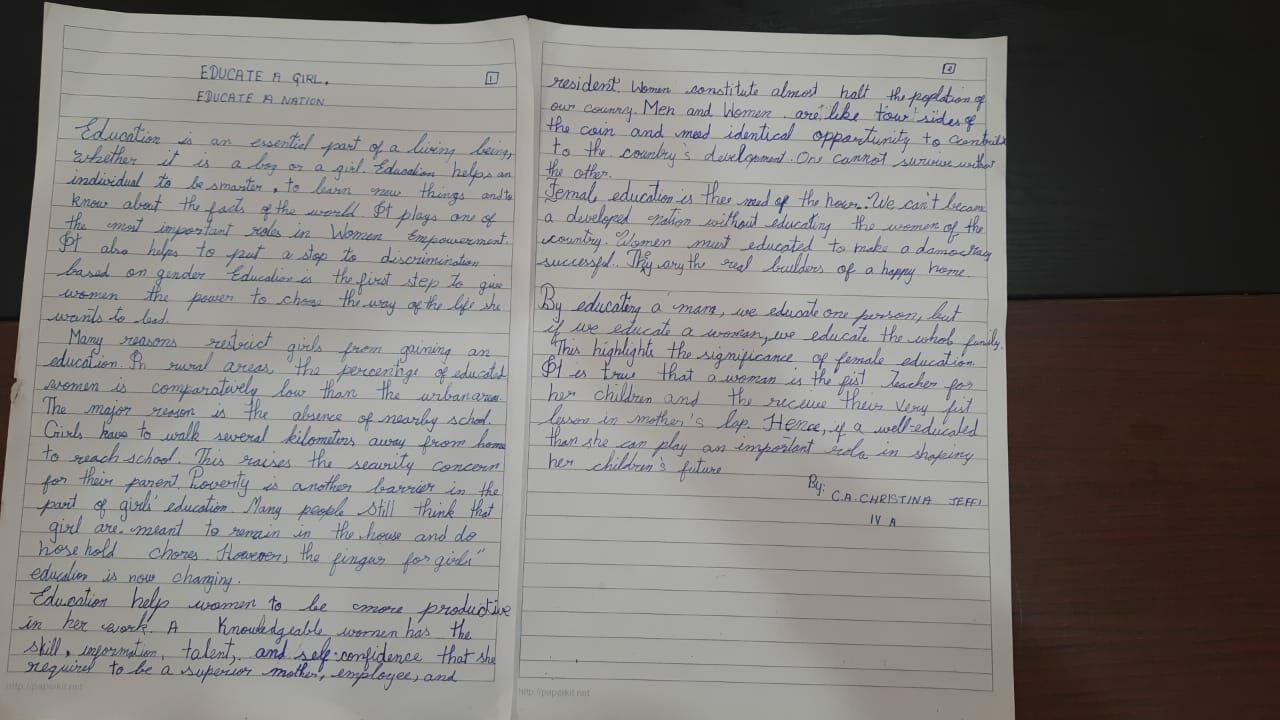 1
EDUCATE A GIRL.
EDUCATE A NATION
Education is an essential part of a living being,
whether it is a boy or a girl. Education helps an
individual to be smarter, to learn new things and to
know about the facts of the world It plays one of
the most important roles in Women Empowerment.
It also helps to put a stop to discrimination
based on gender Education is the first step to give
women the power to choose the way of the life she
wants to lead.
Many reasons restrict girls from gaining an
education. In rural areas, the percentige of educated
women is comparatively low than the urban area
The major reason is the absence of nearby school.
Girls have to walk several kilometers away from home
to reach school. This raises the security concern
for their parent Poverty is another barrier in the
part of girls' education. Many people still think that
girl are meant to remain in the house and do
hose hold chores. However, the fingur for girls"
education is now changing.
Education help women to be more productive
in her work. A Knowledgeable women has the
skill, information, talent, and self-confidence that she
requires to be a superior mother, employee, and
http://paperkit.net
2
resident. Women constitute almost half the popldion of
our counry. Men and Women are like tow sides of
the coin and need identical opportunity to contribute
to the country's development. One cannot survive without
the other.
Female education is thee need of the hour. We can't became
a developed nation without educating the women of the
country. Women must educated to make a damocracy
successful. They are the real builders of a happy home.
By educating a mans, we educate one person, but
if we educate a woman, we educate the whole family.
This highlights the significance of female education.
It is true that a woman is the fist teacher for
her children and the receive their very fist
lesson in mother's lap. Hence, if a well-educated
than she can play an important role in shaping
her children's future
By:
C.A. CHRISTINA JEFFI
IV A
http://paperkit.net